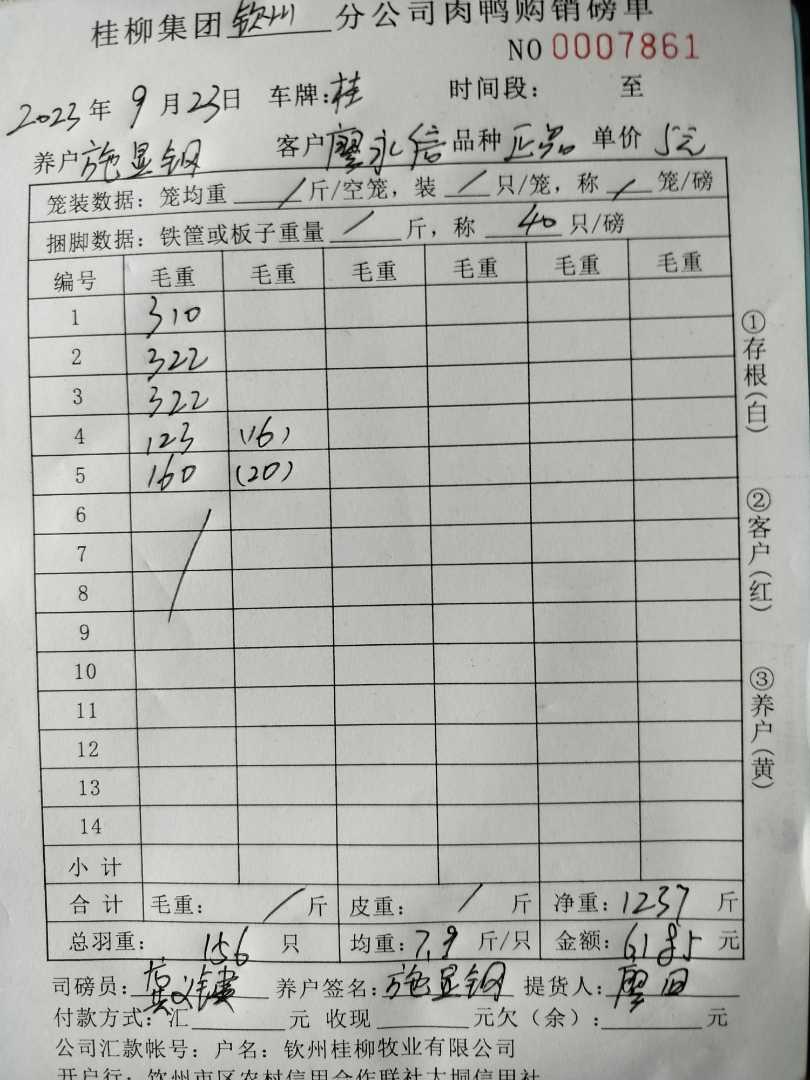 桂柳集团钦州分公司肉鸭购销磅单
NO 0007861
2023年9月23日 车牌:桂 时间段: 至
养户施显钢 客户廖永信 品种正品 单价5元
笼装数据：笼均重 / 斤/空笼，装 / 只/笼，称 / 笼/磅
捆脚数据：铁筐或板子重量 / 斤，称 40 只/磅
编号 毛重 毛重 毛重 毛重 毛重 毛重
1 310
2 322
3 322
4 123 (16)
5 160 (20)
6
7
8
9
10
11
12
13
14
小计
合计 毛重: / 斤 皮重: / 斤 净重:1237斤
总羽重: 156 只 均重:7.9斤/只 金额:6185元
司磅员: 养户签名:施显钢 提货人:廖
付款方式:汇 元 收现 元欠（余）: 元
公司汇款帐号：户名：钦州桂柳牧业有限公司
开户行：钦州市区农村信用合作联社大垌信用社
①存根(白)
②客户(红)
③养户(黄)